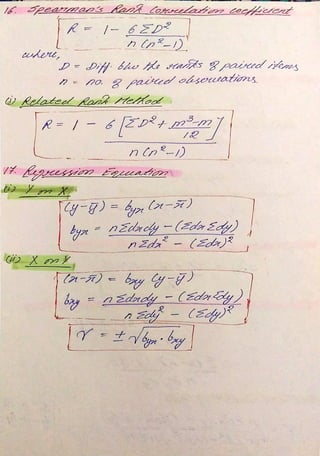 16. Spearman's Rank Correlation coefficient
R = 1 - 6ΣD² / n(n²-1)
where,
D = Diff b/w the ranks of paired items
n = no. of paired observations
(i) Related Rank Method
R = 1 - 6[ΣD² + m³-m / 12] / n(n²-1)
17. Regression Equation
(i) Y on X
(y-ȳ) = byx (x-x̄)
byx = nΣdxdy - (ΣdxΣdy) / nΣdx² - (Σdx)²
(ii) X on Y
(x-x̄) = bxy (y-ȳ)
bxy = nΣdxdy - (ΣdxΣdy) / nΣdy² - (Σdy)²
r = ± √byx·bxy